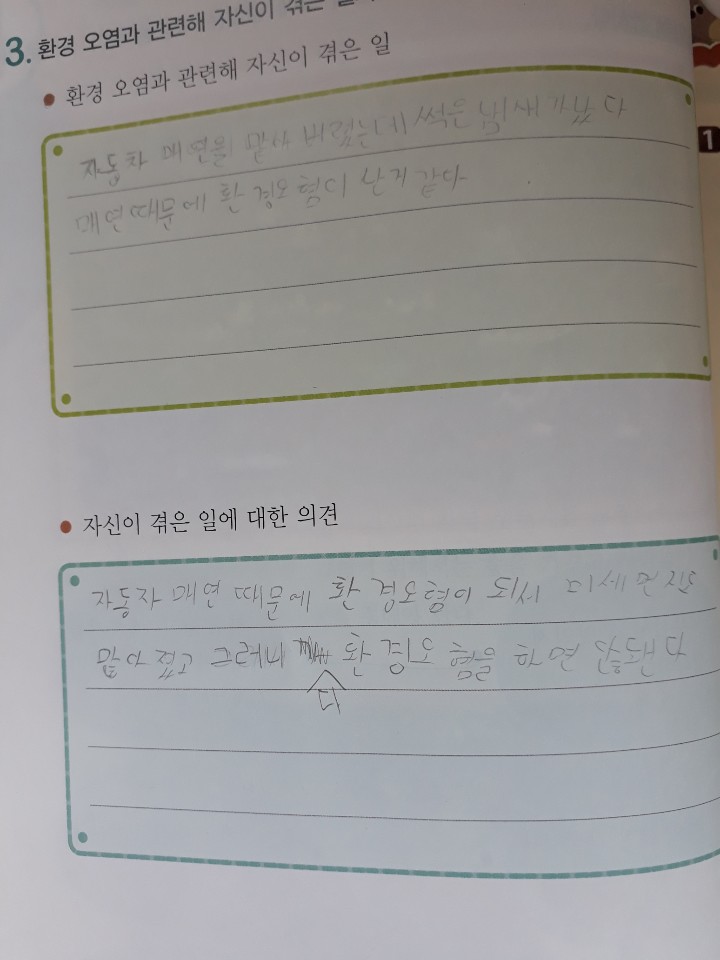 3. 환경 오염과 관련해 자신이 겪은
환경 오염과 관련해 자신이 겪은 일
자동차 매연을 맡아 버렸는데 썩은 냄새가 났다
매연때문에 환경오형이 난거 같다
자신이 겪은 일에 대한 의견
자동자 매연 때문에 환경오형이 되서 미세먼지도
많아 졌고 그레니 환경오 혐을 하면 않됀다
다
1